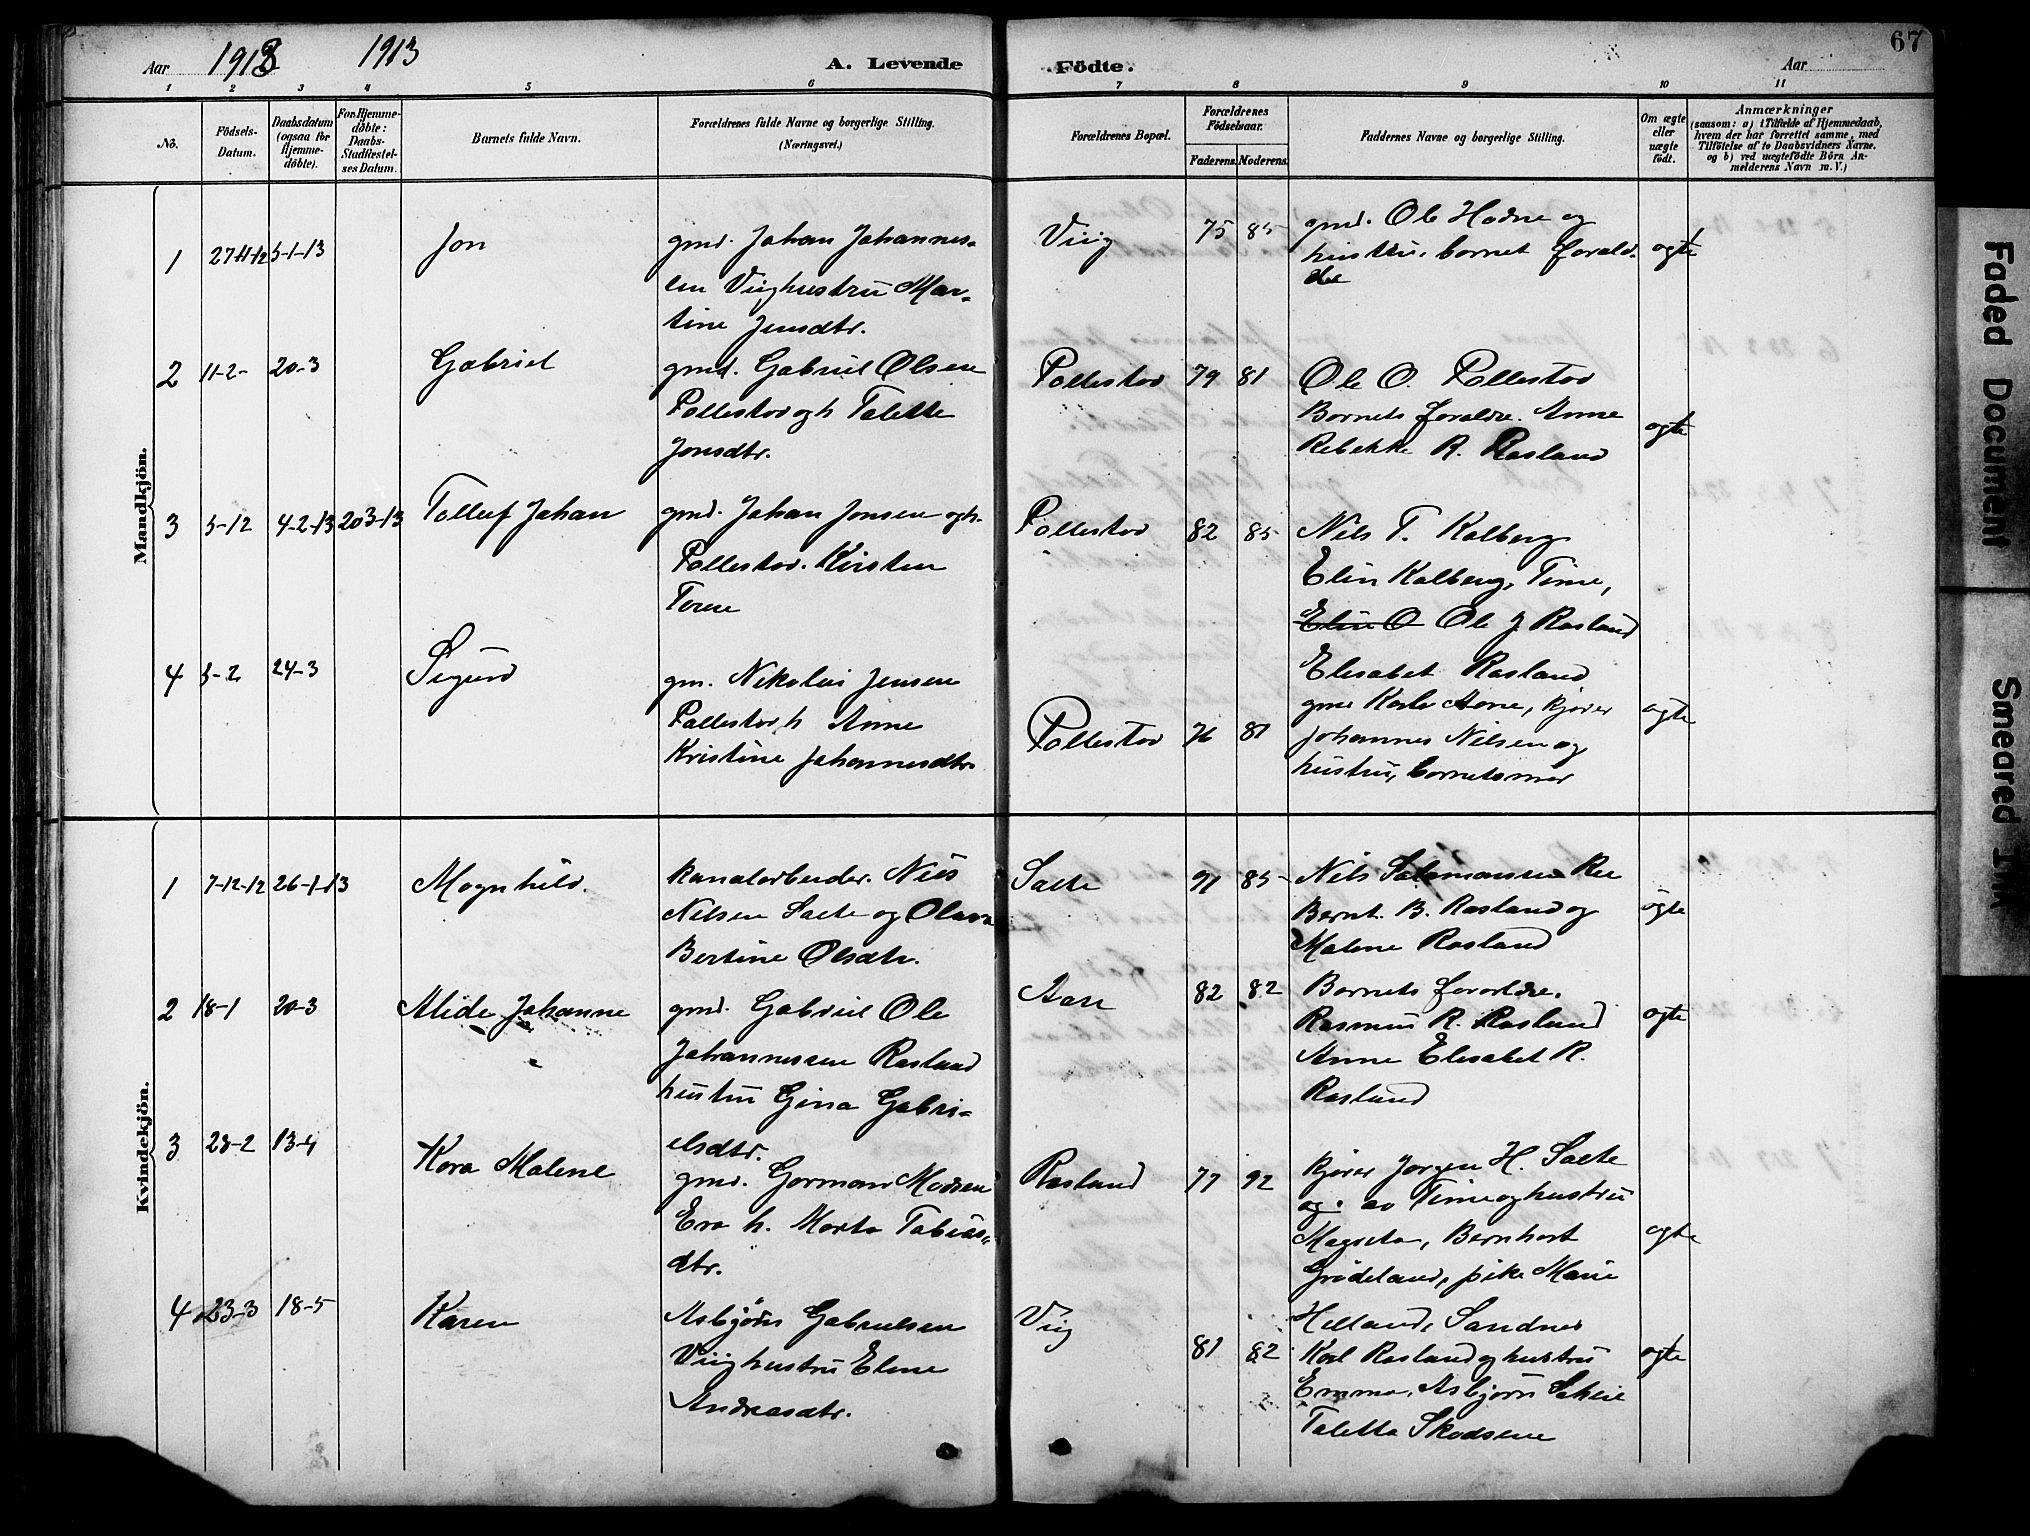 67
Aar 1913 1913 A. Levende Födte. Aar
1 2 3 4 5 6 7 8 9 10 11
No.
Födsels-
Datum.
Daabsdatum
(ogsaa for
Hjemme-
döbte).
For Hjemme-
döbte:
Daabs-
Stadfæstel-
ses Datum.
Barnets fulde Navn.
Forældrenes fulde Navne og borgerlige Stilling.
(Næringsvei.)
Forældrenes Bopæl.
Forældrenes
Födselsaar.
Faderens. Moderens.
Faddernes Navne og borgerlige Stilling.
Om ægte
eller
uægte
födt.
Anmærkninger
(saasom: a) i Tilfælde af Hjemmedaab,
hvem der har forrettet samme, med
Tilföielse af to Daabsvidners Navne,
og b) ved uægtefödte Börn An-
melderens Navn m. V.)
Mandkjön.
1 27-11-12 5-1-13 Jon
gmd. Johan Johannes-
sen Viig hustru Mar-
tine Jensdtr.
Viig 75 85
gmd. Ole Hodne og
hustru, barnet forald.
dre
ogte
2 11-2- 20-3 Gabriel
gmd. Gabriel Olsen
Pollestad og h Talette
Jonsdtr.
Pollestad 79 81
Ole O. Pollestad
Barnets foraldre. Anne
Rebekke R. Rasland
ogte
3 5-12 4-2-13 20 3-13 Tollef Johan
gmd. Johan Jonsen og h.
Pollestad. Kirsten
Torene
Pollestad 82 85
Nils T. Kalberg
Elin Kalberg, Time,
Elin O Ole J. Rasland
Elesabet Rasland
4 5-2 24-3 Sigurd
gm. Nikolai Jensen
Pollestad h Anne
Kristine Johannesdtr.
Pollestad 76 81
gmd Karl Aane, Kjører
Johannes Nilsen og
hustru, barnets mor
ogte
Kvindekjön.
1 7-12-12 26-1-13 Magnhild.
kanalarbeider. Nils
Nilsen Salte og Olava
Bertine Olsdtr.
Salte 91 85
Nils Salamonsen Ree
Bernt. B. Rasland og
Malene Rasland
ogte
2 18-1 20-3 Alide Johanne
gmd. Gabriel Ole
Johannessen Rasland
hustru Gina Gabri-
elsdtr.
Aase 82 82
Barnets foraldre.
Rasmus R. Rasland
Anne Elesabet R.
Rasland
ogte
3 28-2 13-4 Kora Malene
gmd. Gorman Madsen
Era h. Marta Tobias-
dtr.
Rasland 77 92
Kjører Jorgen H. Salte
og. av Time og hustru
Magreta, Bernhart
Grødeland, pike Marie
Helland, Sandnes
ogte
4 23-3 18-5 Karen
Asbjørn Gabrielsen
Viig hustru Elene
Andreasdtr.
Viig 81 82
Karl Rasland og hustru
Emma, Asbjørn Scheie
Taletta Skadsem
ogte
Faded Document
Smeared Ink